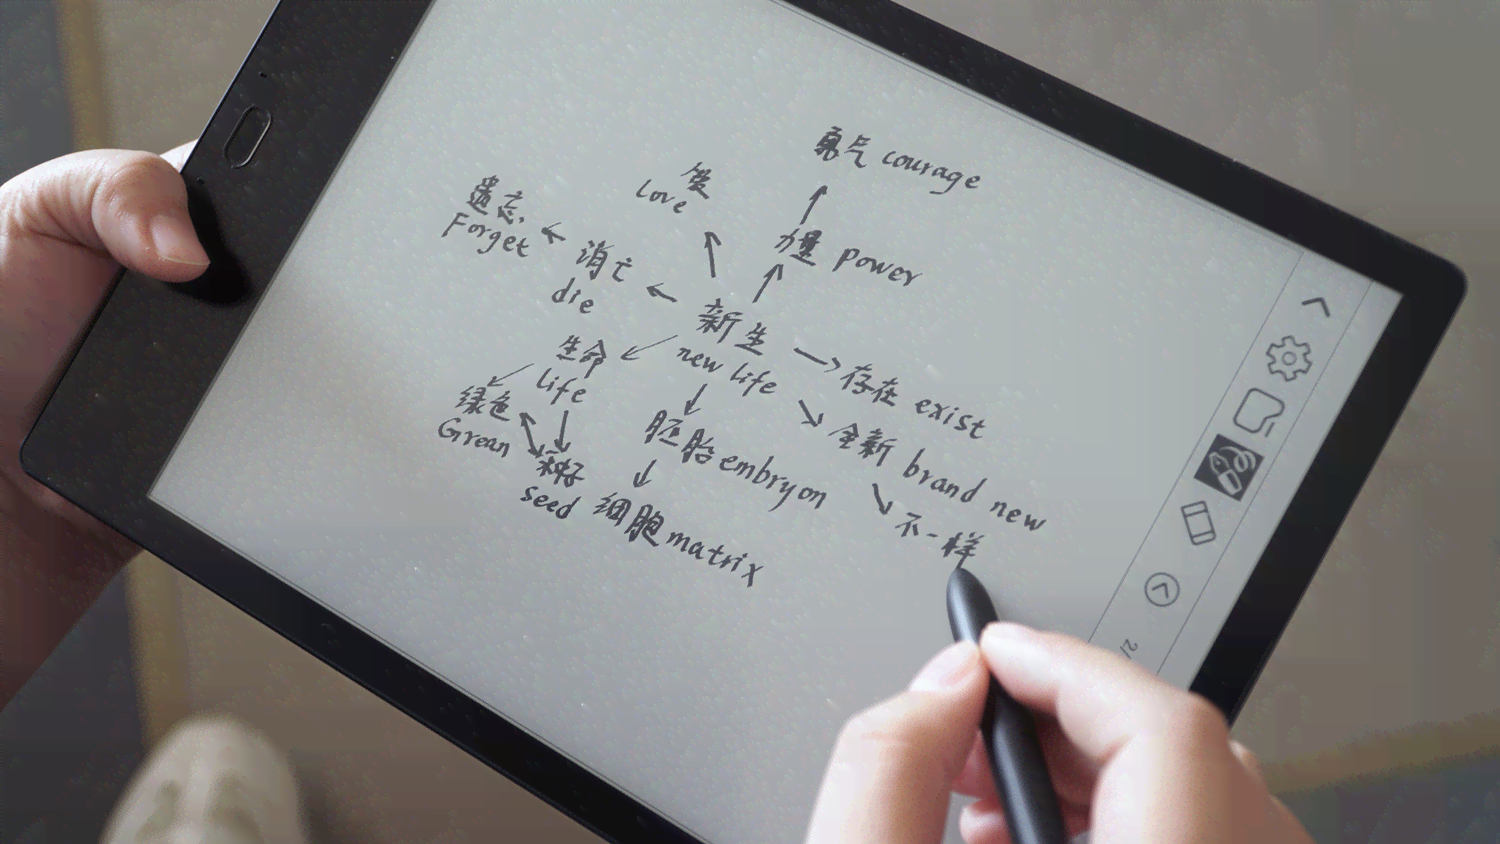 勇气 courage
爱
Love
力量 power
遗忘
Forget
消亡
die
新生
new life
生命
life
存在 exist
绿色
Grean
全新 brand new
胚胎 embryon
种籽
seed
不一样
细胞 matrix
2/